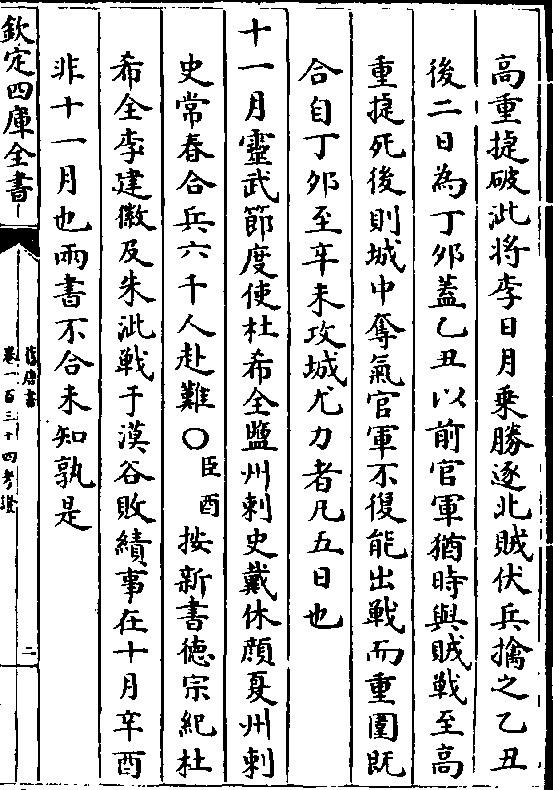 高重捷破泚將李日月乘勝逐北賊伏兵擒之乙丑
後二日為丁夘蓋乙丑以前官軍猶時與賊戰至高
重捷死後則城中奪氣官軍不復能出戰而重圍既
合自丁夘至辛未攻城尤力者凡五日也
十一月靈武節度使杜希全鹽州刺史戴休顔夏州刺
史常春合兵六千人赴難〇臣酉按新書德宗紀杜
希全李建徽及朱泚戰于漠谷敗績事在十月辛酉
非十一月也兩書不合未知孰是
欽定四庫全書
舊唐書
卷一百三十四考證
二